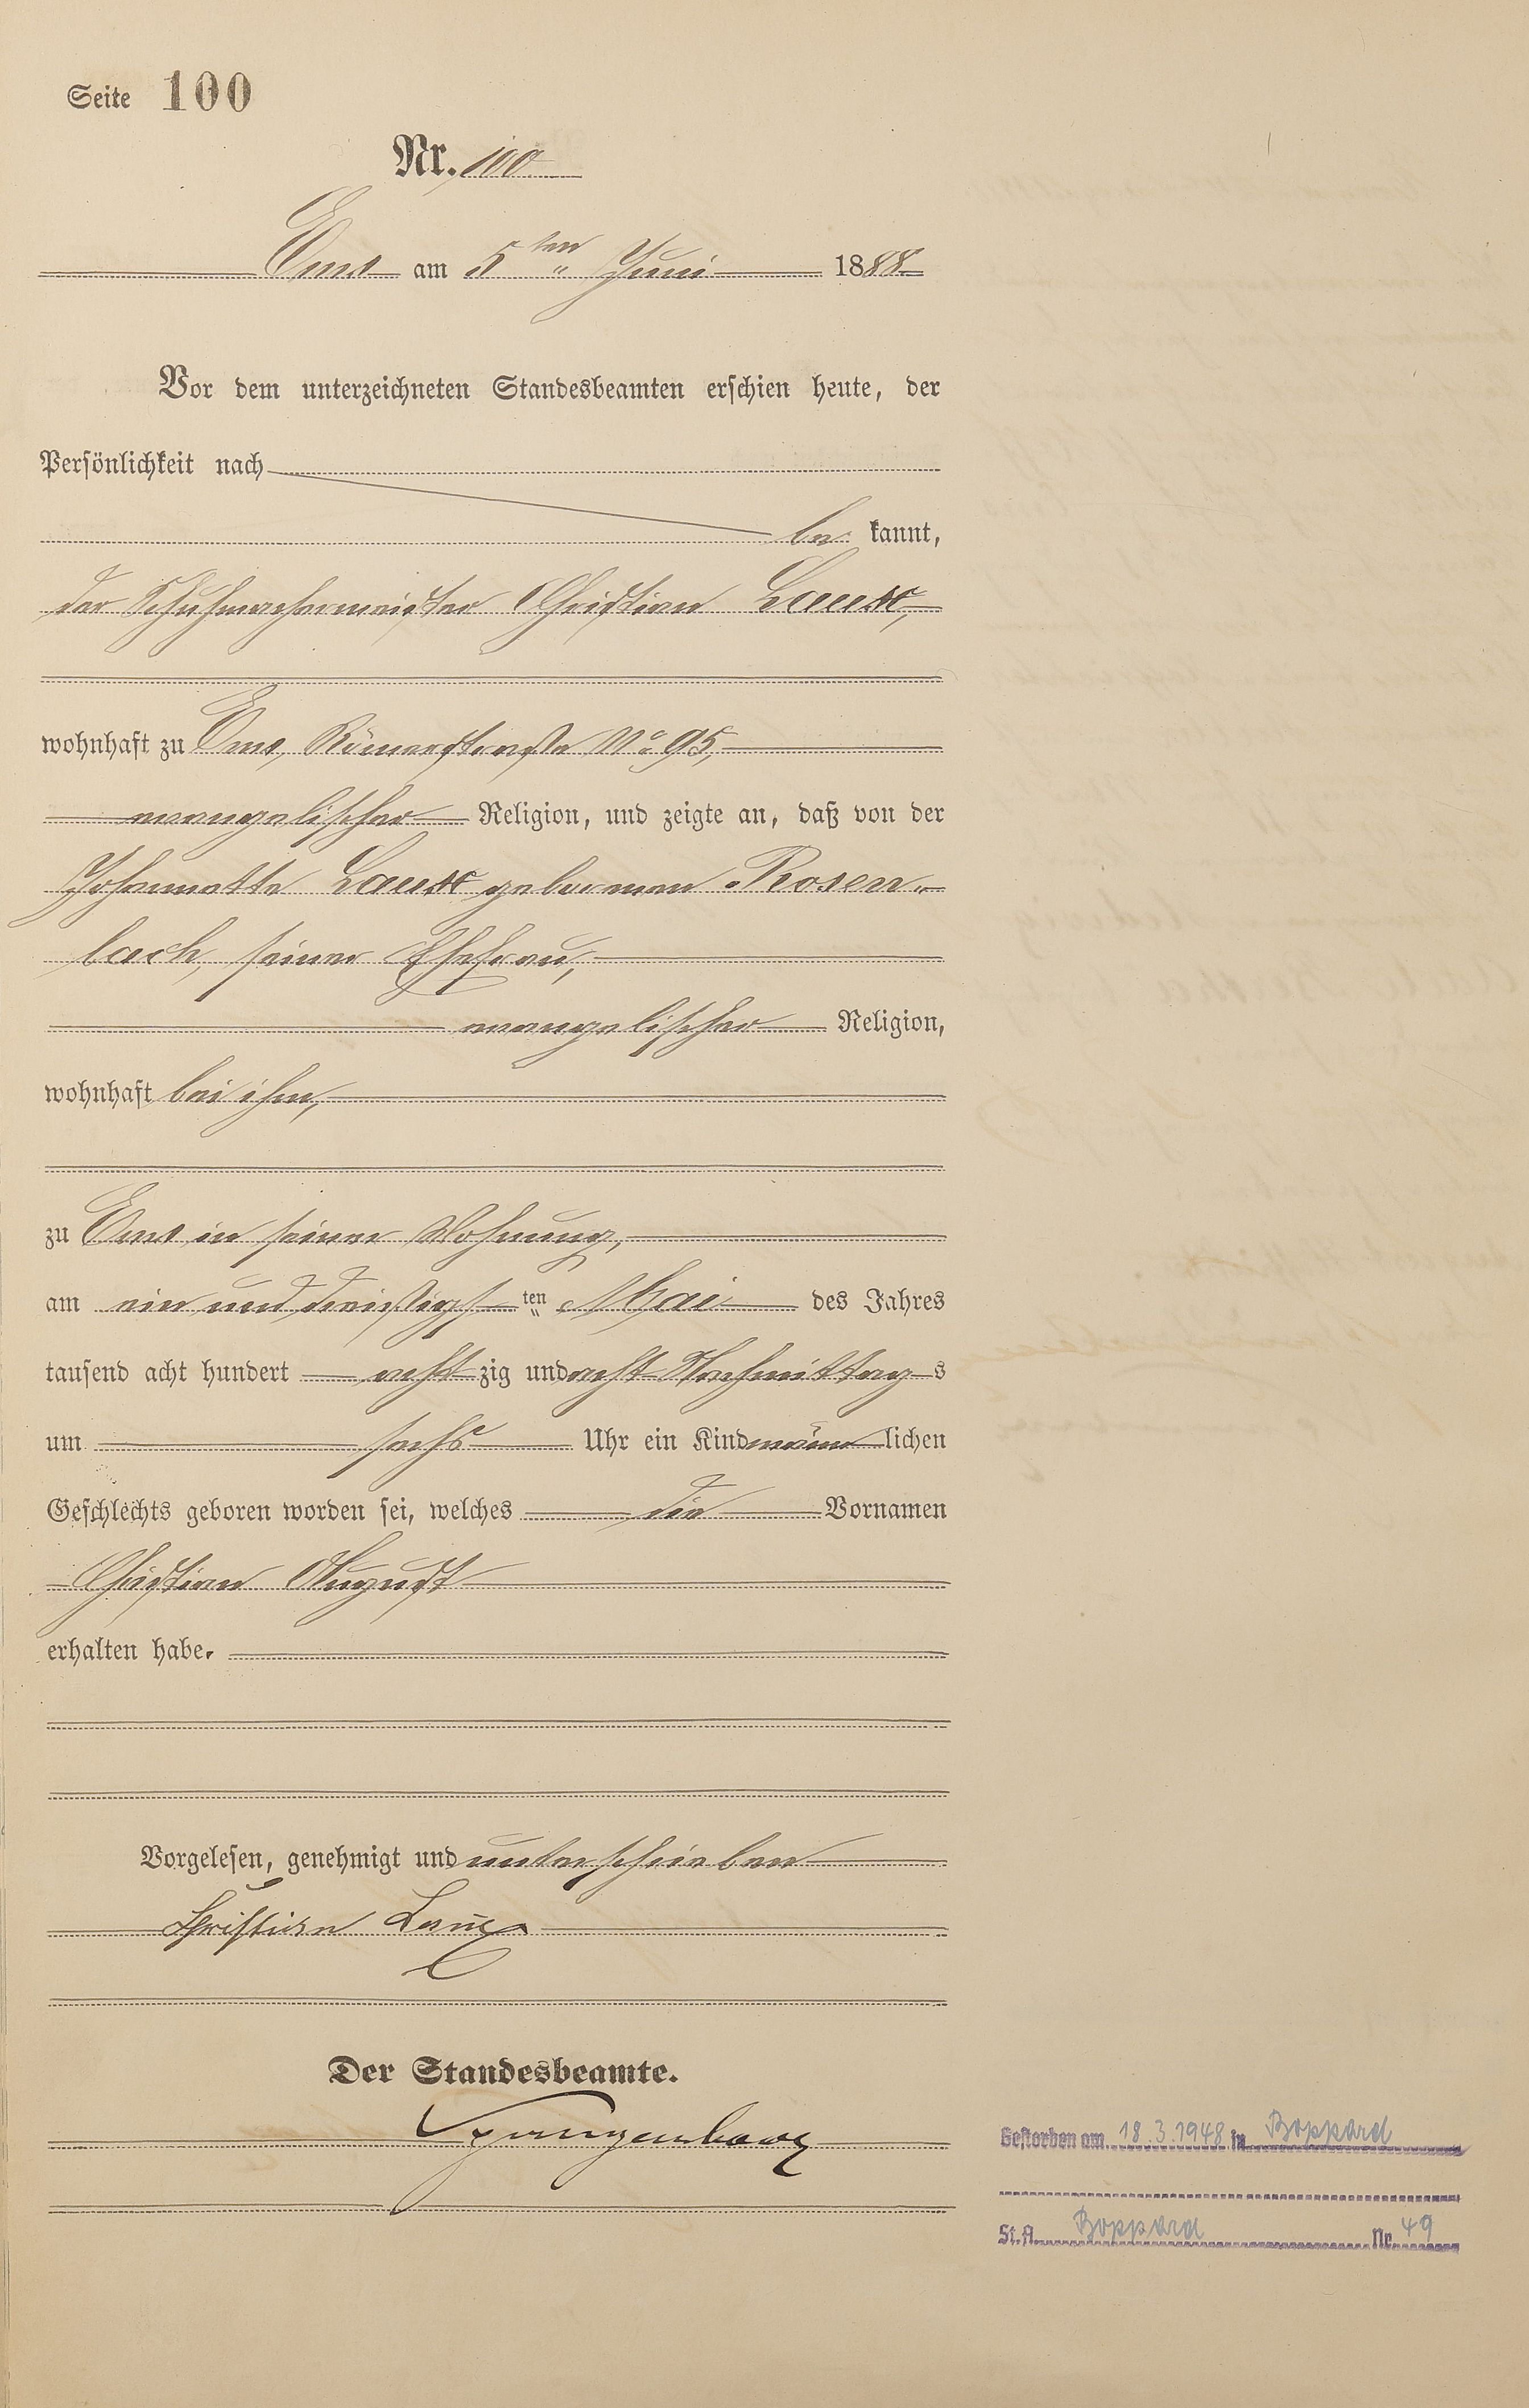 Seite 100
Nr. 100
Ems am 5ten Juni 1888
Vor dem unterzeichneten Standesbeamten erschien heute, der
Persönlichkeit nach
be kannt,
der Schuhmachermeister Christian Laux,
wohnhaft zu Ems, Römerstraße No 95,
evangelischer Religion, und zeigte an, daß von der
Johannette Laux geborenen Rosen-
bach, seiner Ehefrau,
evangelischer Religion,
wohnhaft bei ihm,
zu Ems in seiner Wohnung,
am ein und dreißigsten Mai des Jahres
tausend acht hundert achtzig und acht Nachmittags
um sechs Uhr ein Kind männlichen
Geschlechts geboren worden sei, welches die Vornamen
Christian August
erhalten habe.
Vorgelesen, genehmigt und unterschrieben
Christian Laux
Der Standesbeamte.
Gestorben am 18.3.1948 in Boppard
St.A. Boppard Nr. 49